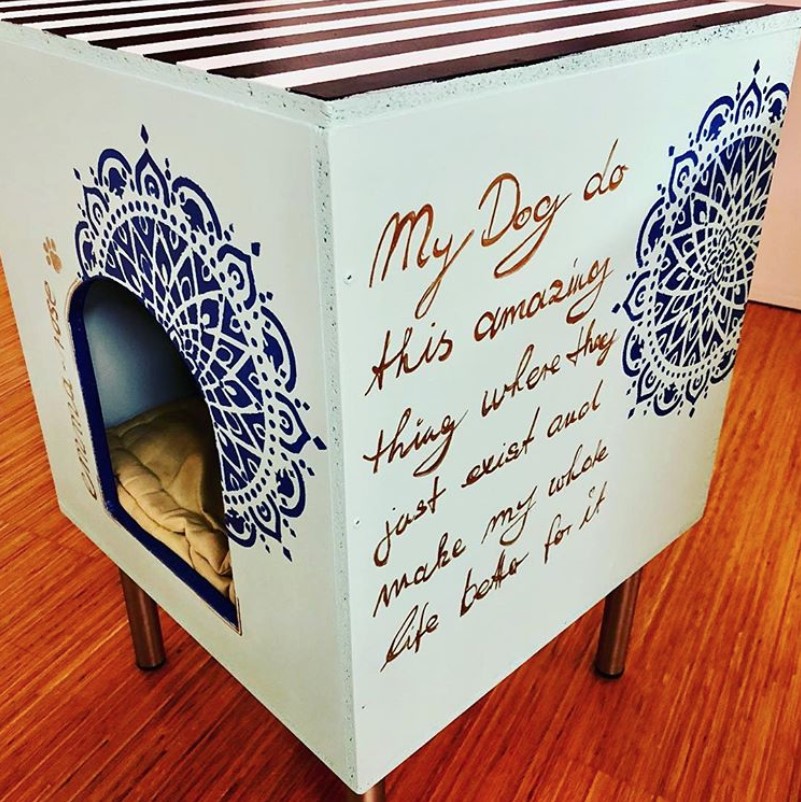 emma-rose
My Dog do
this amazing
thing where they
just exist and
make my whole
life better for it